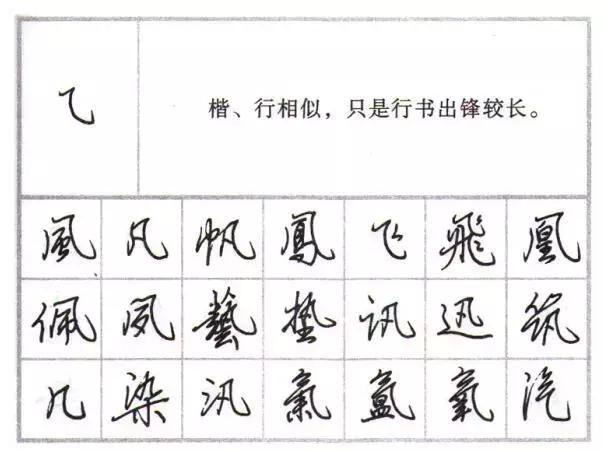 ⺄ 楷、行相似，只是行书出锋较长。
風 凡 帆 鳳 飞 飛 凰
佩 夙 藝 垫 讯 迅 筑
几 染 汛 氣 氲 氧 汽